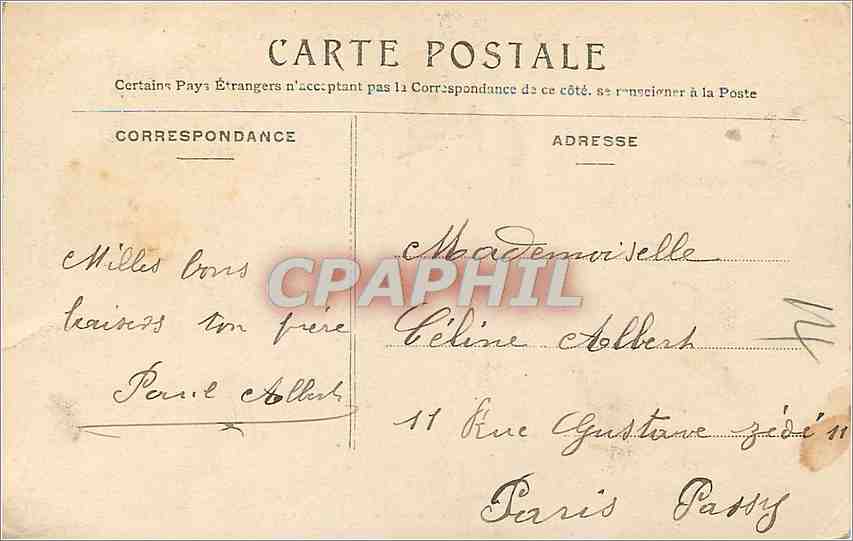 CARTE POSTALE
Certains Pays Étrangers n'acceptant pas la Correspondance de ce côté. se renseigner à la Poste
CORRESPONDANCE
ADRESSE
Milles bons
baisers ton frère
Paul Albert
Mademoiselle
Céline Albert
11 Rue Gustave Zédé 11
Paris Passy
CPAPHIL